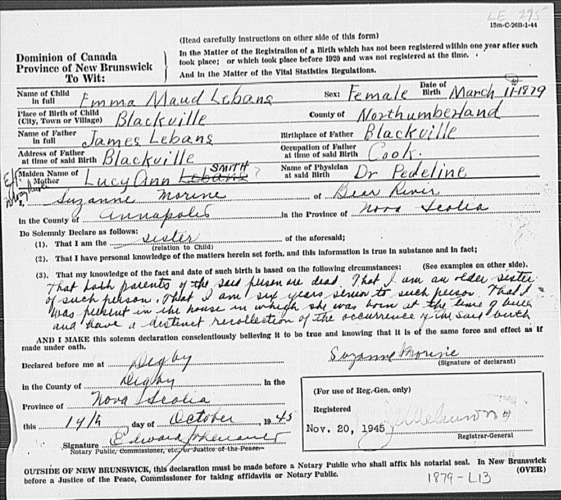 LE-295
15m-C-26B-1-44
(Read carefully instructions on other side of this form)
Dominion of Canada
Province of New Brunswick
To Wit:
In the Matter of the Registration of a Birth which has not been registered within one year after such
took place; or which took place before 1920 and was not registered at the time.
And in the Matter of the Vital Statistics Regulations.
Name of Child in full Emma Maud Lebans Sex: Female Date of Birth March 11-1879
Place of Birth of Child (City, Town or Village) Blackville County of Northumberland
Name of Father in full James Lebans Birthplace of Father Blackville
Address of Father at time of said Birth Blackville Occupation of Father at time of said Birth Cook.
Maiden Name of Mother Lucy Ann Lebans SMITH ? Name of Physician at said Birth Dr Pedeline
Suzanne Morine of Bear River
in the County of Annapolis in the Province of Nova Scotia
Do Solemnly Declare as follows:
(1). That I am the sister of the aforesaid;
(relation to Child)
(2). That I have personal knowledge of the matters herein set forth, and this information is true in substance and in fact;
(3). That my knowledge of the fact and date of such birth is based on the following circumstances: (See examples on other side).
That both parents of the said person are dead. That I am an older sister
of such person. That I am six years senior to such person. That I
was present in the house in which she was born at the time of birth
and have a distinct recollection of the occurrence of said birth
AND I MAKE this solemn declaration conscientiously believing it to be true and knowing that it is of the same force and effect as if
made under oath.
Declared before me at Digby
Suzanne Morine
(Signature of declarant)
in the County of Digby in the
Province of Nova Scotia
this 14th day of October 1945
Signature Edward
Notary Public, Commissioner, etc. or Justice of the Peace.
(For use of Reg.-Gen. only)
Registered
Nov. 20, 1945
Registrar-General
OUTSIDE OF NEW BRUNSWICK, this declaration must be made before a Notary Public who shall affix his notarial seal. In New Brunswick
before a Justice of the Peace, Commissioner for taking affidavits or Notary Public. (OVER)
1879-L13